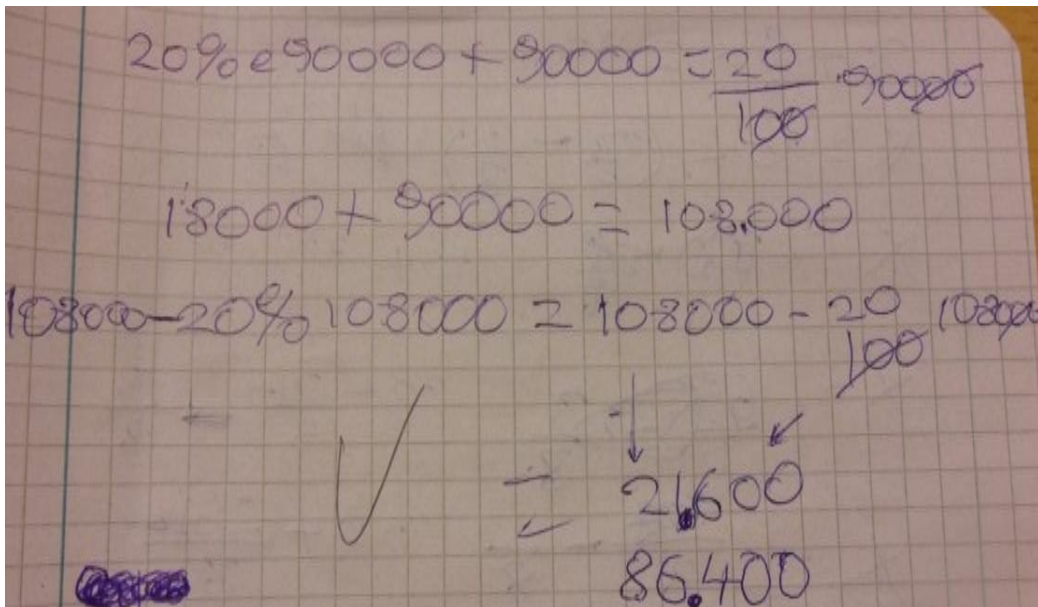 20% e 90000 + 90000 = 20/100 · 90000
18000 + 90000 = 108.000
108000 - 20% 108000 = 108000 - 20/100 108000
= 21.600
= 86.400